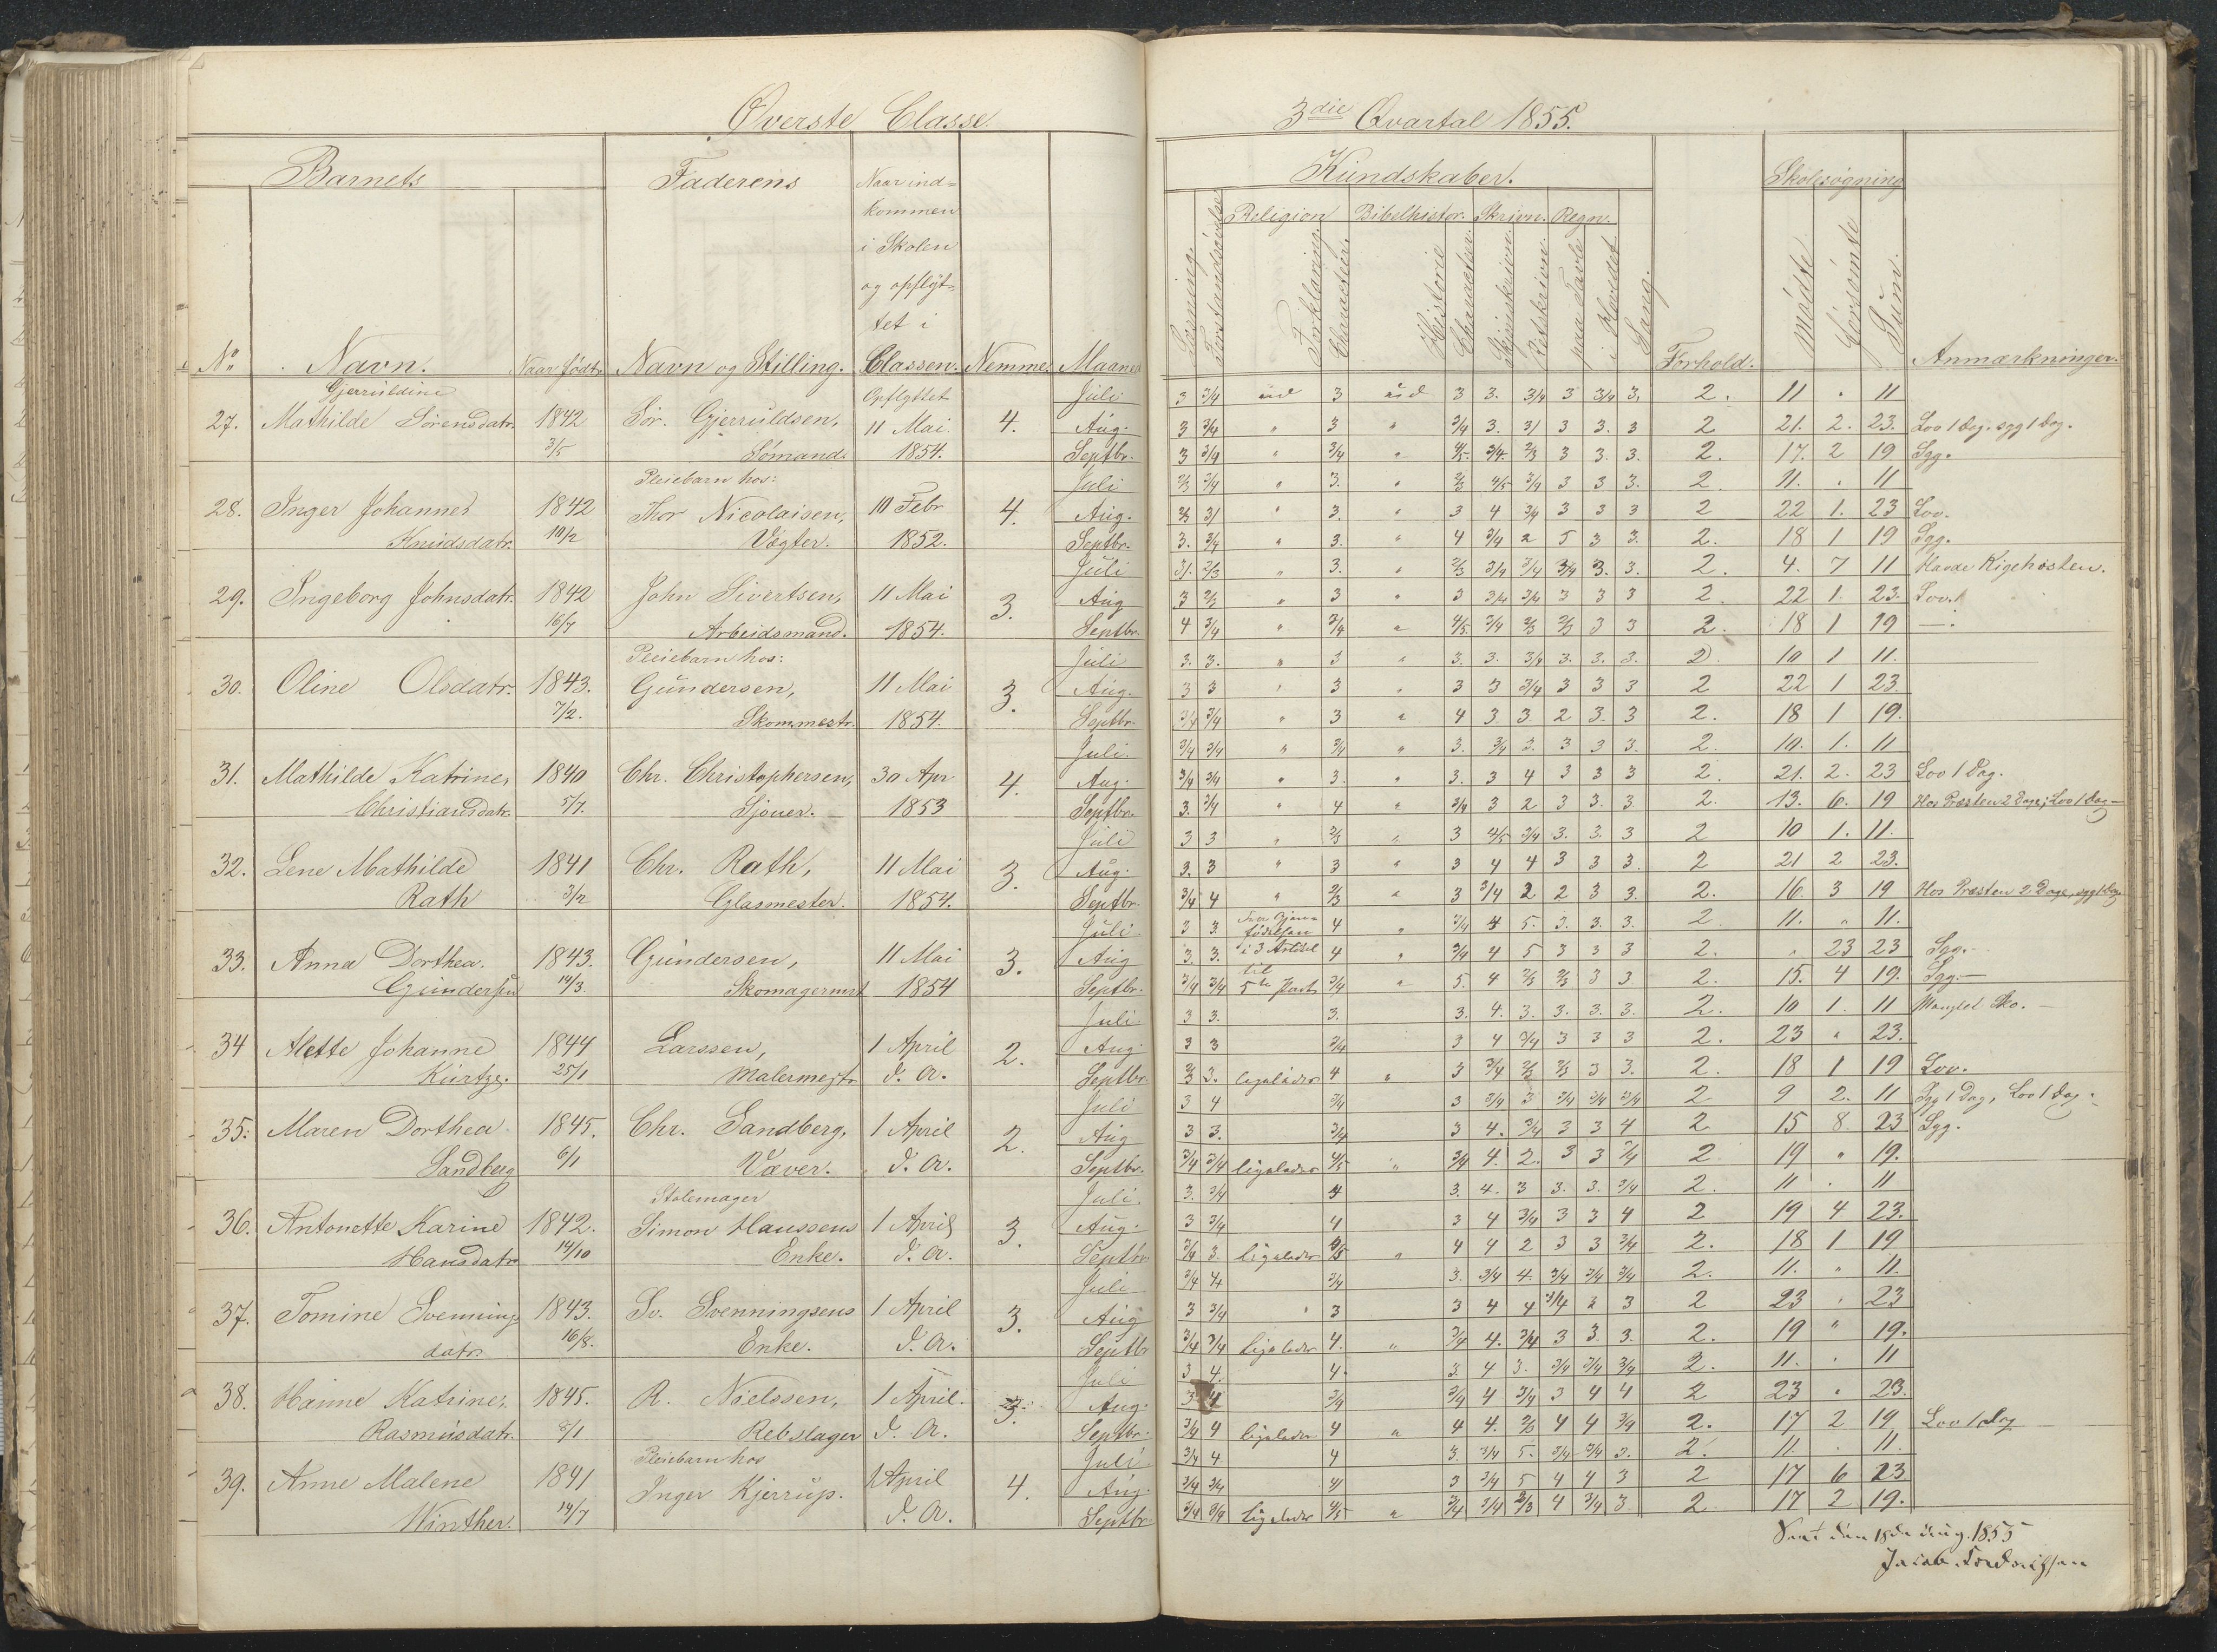 Øverste Classe.
Barnets
Faderens
Naar ind=
kommen
i Skolen
og opflyt=
tet i
Classen.
No
Navn.
Naar født
Navn og Stilling.
Nemme.
Maaned
27. Mathilde Gjerruldine Sørensdatr. 1842 3/5 Sør. Gjerruldsen, Sømand. Opflyttet 11 Mai 1854. 4. Juli Aug. Septbr.
28. Inger Johanne Knudsdatr. 1842 10/2 Pleiebarn hos: Thor Nicolaisen, Vægter. 10 Febr 1852. 4. Juli Aug. Septbr.
29. Ingeborg Johnsdatr. 1842 16/7 John Sivertsen, Arbeidsmand. 11 Mai 1854. 3. Juli Aug Septbr.
30. Oline Olsdatr. 1843. 7/2. Pleiebarn hos: Gundersen, Skommestr. 11 Mai 1854. 3. Juli Aug. Septbr.
31. Mathilde Katrine Christiansdatr. 1840 5/7. Chr. Christophersen, Sjouer. 30 Apr 1853 4. Juli. Aug. Septbr.
32. Lene Mathilde Rath 1841 3/2 Chr. Rath, Glasmester. 11 Mai 1854. 3. Juli Aug. Septbr.
33. Anna Dorthea Gundersen 1843. 14/3. Gundersen, Skomagermst 11 Mai 1854 3. Juli Aug Septbr.
34 Alette Johanne Kürtze. 1844 25/1 Larssen, Malermestr 1 April d. A. 2. Juli. Aug. Septbr.
35. Maren Dorthea Sandberg 1845. 6/1 Chr. Sandberg, Væver. 1 April d. A. 2. Juli Aug Septbr.
36. Antonette Karine Hansdatr. 1842. 14/10 Stolemager Simon Hanssens Enke. 1 April d. A. 3. Juli. Aug. Septbr
37. Tomine Svennings datr. 1843. 16/8. Sv. Svenningsens Enke. 1 April d. A. 3. Juli Aug Septbr
38. Hanne Katrine Rasmusdatr. 1845. 8/1 R. Nielssen, Rebslager 1 April. d. A. 3. Juli Aug. Septbr.
39. Anne Malene Winther. 1841 14/7 Pleiebarn hos Inger Kjerrup. 1 April d. A. 4. Juli Aug. Septbr.
3die Qvartal 1855.
Kundskaber.
Skolesøgning
Religion
Bibelhistor.
Skrivn.
Regn.
Læsning.
Forstandsøvelse
Forklaring.
Character.
Historie
Character.
Skjønskrivn.
Retskrivn.
paa Tavle
i Hovedet
Sang.
Forhold.
Mødte
Forsømte
Sum.
Anmærkninger.
3 3/4 ud 3 ud 3 3. 3/4 3 3/4 3. 2. 11 " 11
3 3/4 " 3 " 3/4 3. 31 3 3. 3 2 21. 2. 23. Lov 1 dag. syg 1 dag.
3 3/4 " 3/4 " 4/5. 3/4 2/3 3 3. 3. 2. 17. 2 19 Syg.
2/3 3/4 " 3. " 2/3 4/5 3/4 3 3 3. 2. 11. " 11
2/3 31 " 3. " 3 4 3/4 3 3 3 2 22 1. 23 Lov.
3. 3/4 " 3. " 4 3/4 2 5 3 3. 2. 18 1 19 Syg.
31. 2/3 " 3. " 2/3 3/4 3/4 3/4 3. 3. 2. 4. 7 11 Havde Kighosten.
3 2/3 " 3 " 3 3/4 3/4 3 3 3 2 22 1. 23. Lov.
4 3/4 " 3/4 " 4/5. 3/4 2/3 2/3 3 3 2. 18 1 19 —.
3. 3. " 3 " 3. 3. 3/4 3. 3. 3. 2. 10 1 11.
3 3 " 3 " 3 3 3/4 3 3 3 2 22 1 23.
3/4 3/4 " 3 " 4 3. 3. 2 3. 3 2. 18 1 19.
3/4 3/4 " 3/4 " 3. 3/4 3. 3 3 3. 2. 10. 1. 11
3/4 3/4 " 3. " 3. 3 4 3 3 3 2. 21. 2. 23 Lov 1 Dag.
3. 3/4 " 4 " 3/4 3 2 3 3. 3 2. 13. 6. 19 Hos Præsten 2 Dage; Lov 1 Dag
3 3 " 2/3 " 3 4/5 3/4 3. 3. 3 2 10 1. 11.
3. 3 " 3 " 3 4 4 3 3 3. 2 21 2 23.
3/4 4 " 2/3 " 3 3/4 2 2 3 3. 2. 16. 3 19 Hos Præsten 2 Dage, syg 1 dag
3 3. fødelsen 4 " 3/4 4 5. 3. 3. 3. 2 11. " 11.
3. 3. i 3 Artikel 4 " 3/4 4 5 3 3 3 2. " 23 23 Syg.
3/4 3/4 til 5te Part 3/4 " 5. 4 2/3 2/3 3 3 2. 15. 4 19. Syg.
3 3. 3. 3. 4. 3. 3. 3. 3. 2. 10 1. 11 Manglet Sko.
3 3 3/4 3 4 3/4 3 3 3 2. 23 " 23.
2/3 3. ligeledes 4 " 3 3/4 2/3 2/3 3 3. 2. 18 1 19 Lov.
3 4 3/4 3 3/4 3 3/4 3/4 3/4 2 9 2. 11 Syg 1 Dag, Lov 1 dag.
3 3. 3/4 3 4. 3/4 3 3 4 2 15 8 23 Syg.
3/4 3/4 ligeledes 4/5 " 3/4 4. 2. 3 3 3/4 2 19 " 19.
3. 3/4 4 3. 4. 3 3. 3. 3/4 2. 11 " 11
3 3/4 4 3 4 3/4 3 3 4 2 19 4 23.
3/4 3. ligeledes 4/5 " 4 4 2 3 3 3/4 2. 18 1 19
3/4 4 3/4 3. 3/4 4. 3/4 3/4 3/4 2. 11. " 11.
3 3/4 3 3 4 4 3/4 3 3 2 23 " 23
3/4 3/4 ligeledes 4. " 3/4 4. 3/4 3 3. 3. 2. 19 " 19.
3 4. 4. 3. 4 3. 3/4 3/4 3/4 2. 11. " 11
3 4 3/4 3/4 4 3/4 3 4 4 2 23 " 23.
3/4 4 ligeledes 4 " 4 4. 2/3 4 4 3/4 2. 17 2 19 Lov 1 dag
3/4 4 4 3. 3/4 5. 3/4 3/4 3. 2. 11. " 11.
3/4 3/4 4 3 3/4 5 4 4 3 2 17 6 23
3/4 3/4 ligeledes 4/5 " 3/4 3/4 2/3 4 3/4 3 2. 17 2 19.
Seet den 18de Aug. 1855